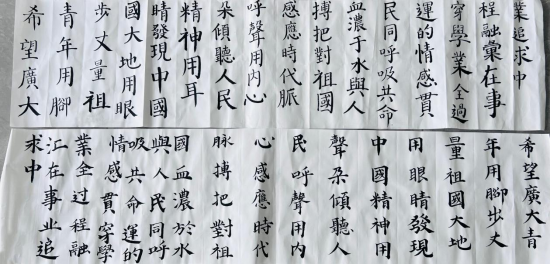 希望廣大
青年用腳
步丈量祖
國大地用眼
睛發現中國
精神用耳
朵傾聽人民
呼聲用內心
感應時代脈
搏把對祖國
血濃于水與人
民同呼吸共命
運的情感貫
穿學業全過
程融彙在事
業追求中
希望廣大青
年用腳步丈
量祖國大地
用眼睛發現
中國精神用
聲朵傾聽人
民呼聲用內
心感應時代
脈搏把對祖
國血濃於水
與人民同呼
吸共命運的
情感貫穿學
業全過程融
汇在事业追
求中